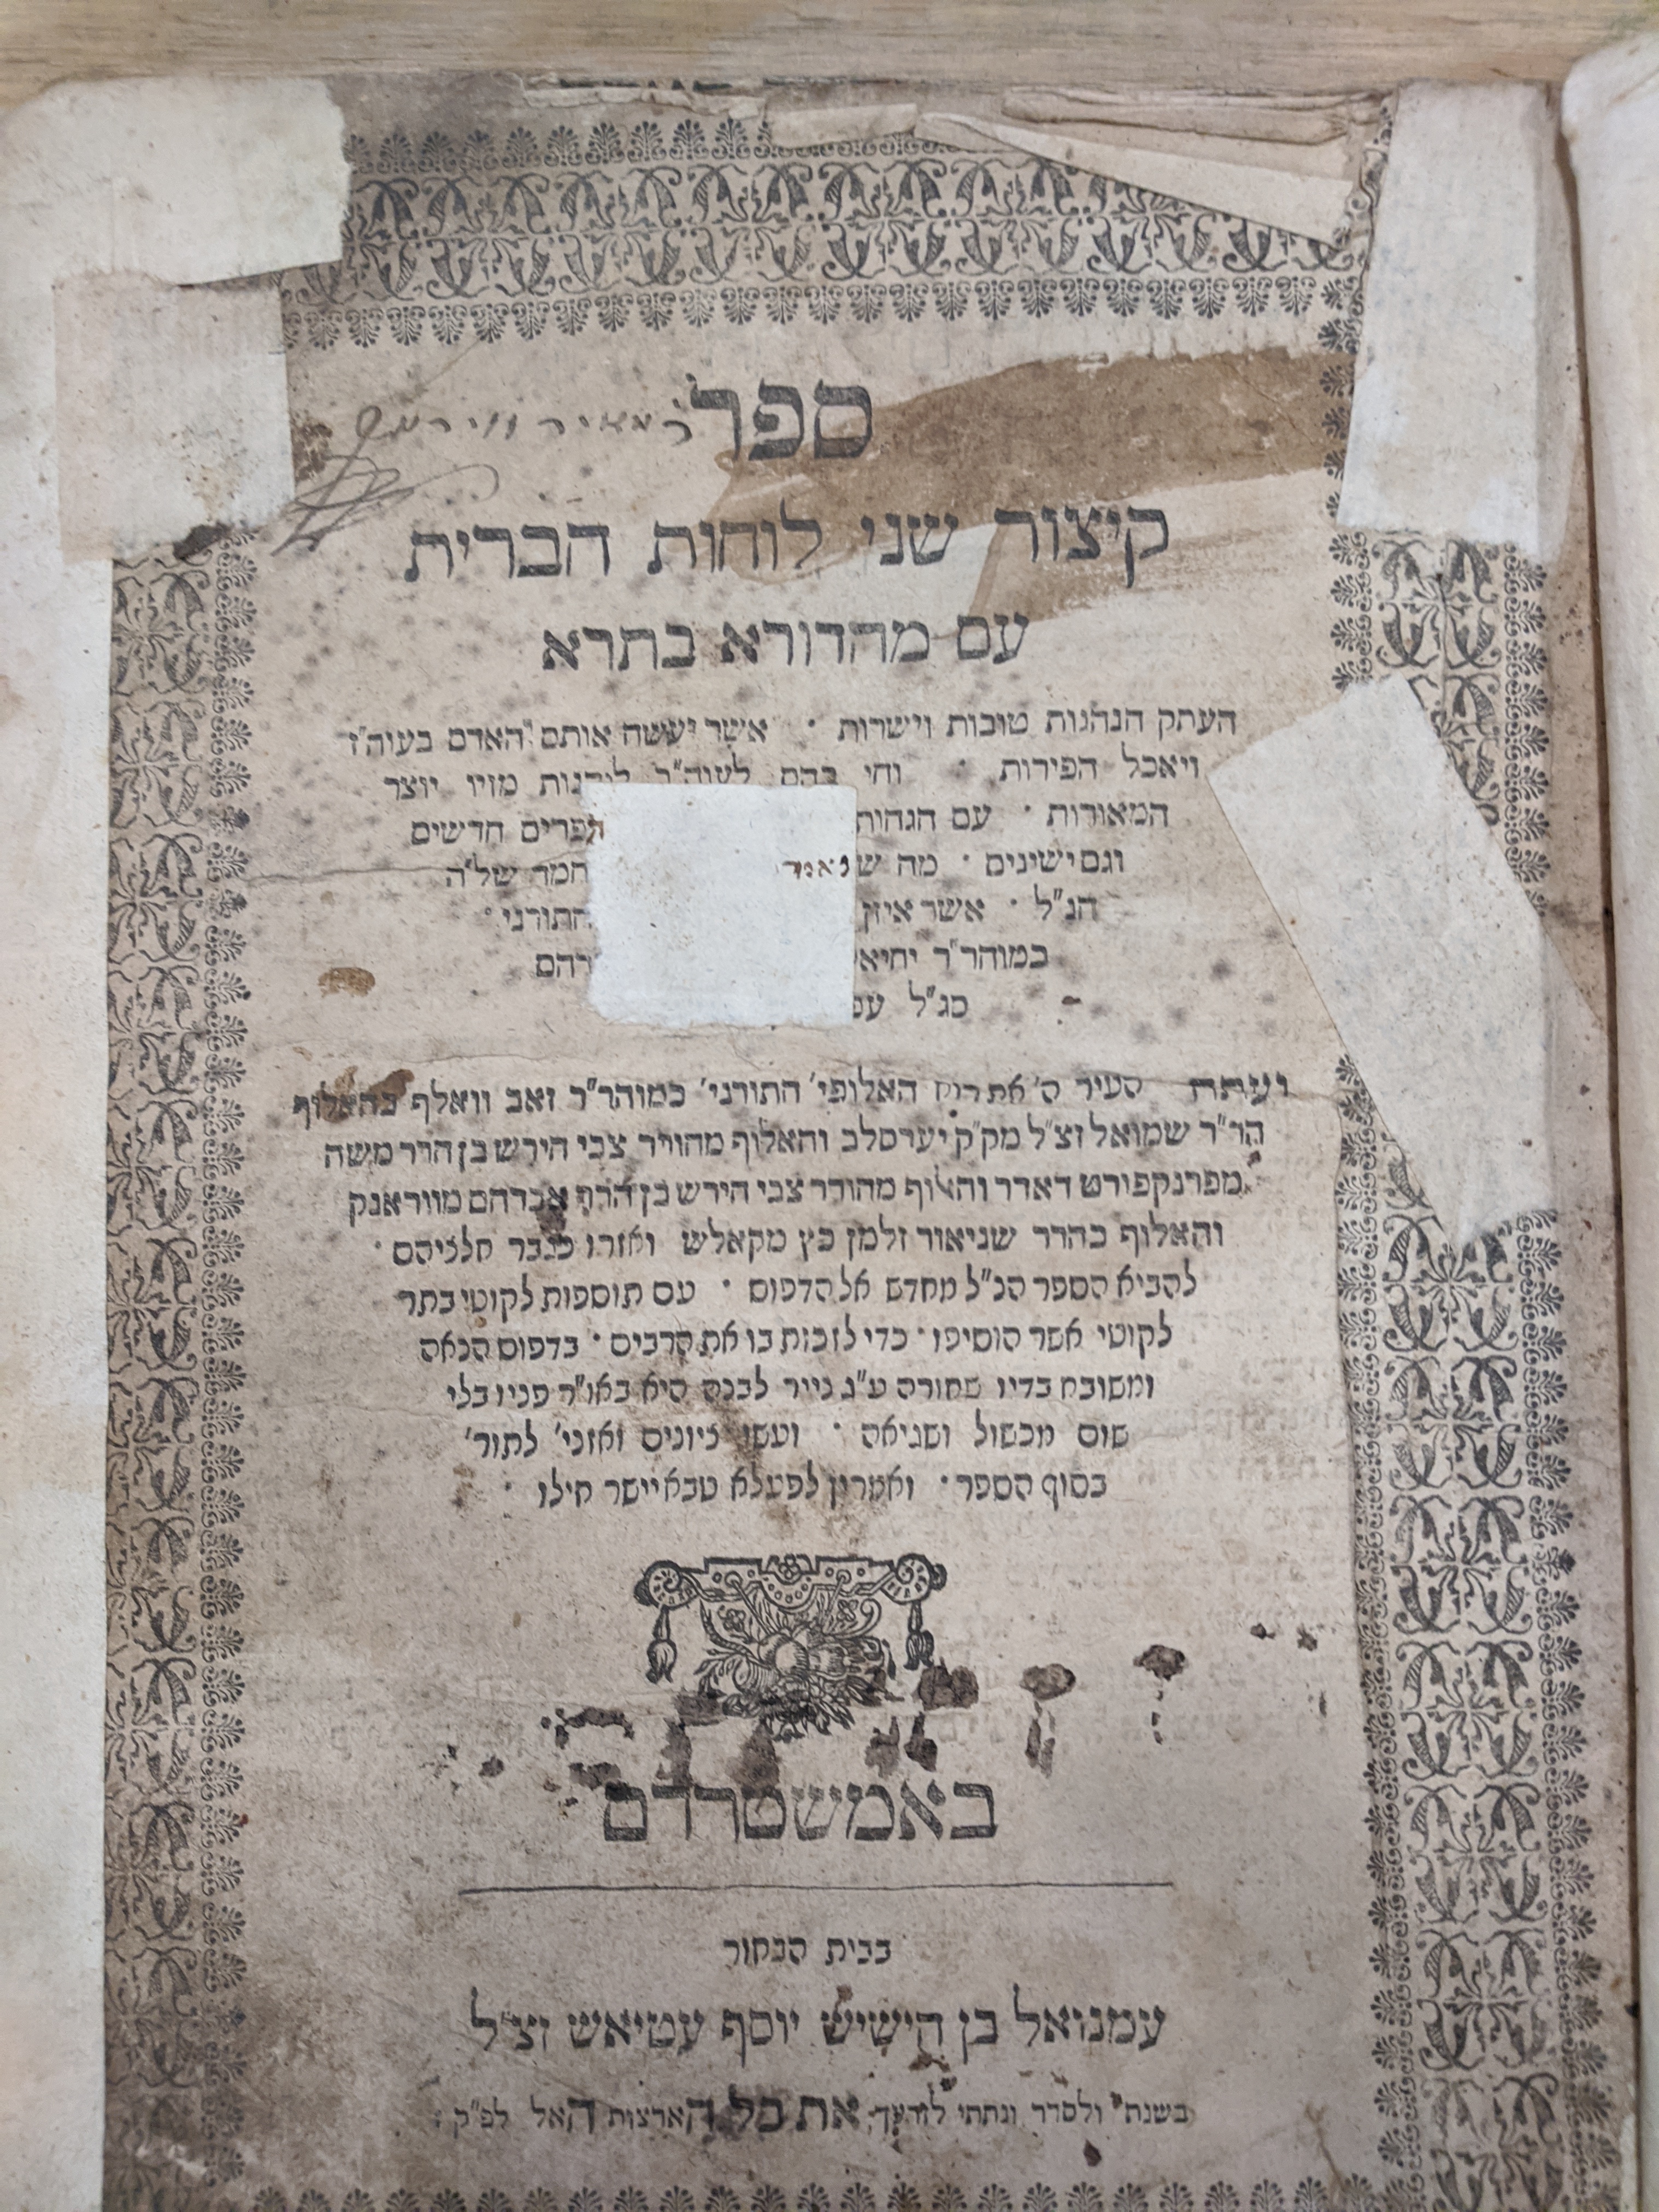 ספר
קיצור שני לוחות הברית
עם מהדורא בתרא
העתק הנהגות טובות וישרות • אשר יעשה אותם האדם בעוה"ז
ויאכל הפירות • וחי בהם לעוה"ב ליהנות מזיו יוצר
המאורות • עם הגהות חדשים
וגם ישינים • מה של"ה
הנ"ל • אשר איזן התורני •
במוהר"ר
כג"ל
ועתה העיר ה' את רוח האלופי' התורני' כמוהר"ר זאב וואלף בהאלוף
הר"ר שמואל זצ"ל מק"ק יערסלב והאלוף מהור"ר צבי הירש בן הרר משה
מפרנקפורט דאדר והאלוף מהורר צבי הירש בן הרר אברהם מווראנק
והאלוף כהרר שניאור זלמן כץ מקאליש ואזרו כגבר חלציהם •
להביא הספר הנ"ל מחדש אל הדפוס • עם תוספות לקוטי בתר
לקוטי אשר הוסיפו • כדי לזכות בו את הרבים • בדפוס הנאה
ומשובח בדיו שחורה ע"ג נייר לבנה היא באו"ר פניו בלי
שום מכשול ושגיאה • ועשו ציונים ואזני' לתור'
בסוף הספר • ואמרין לפעלא טבא יישר חילו •
באמשטרדם
בבית הבחור
עמנואל בן הישיש יוסף עטיאש זצ"ל
בשנת ולסדר ונתתי לזרעך את כל הארצות האל לפ"ק :